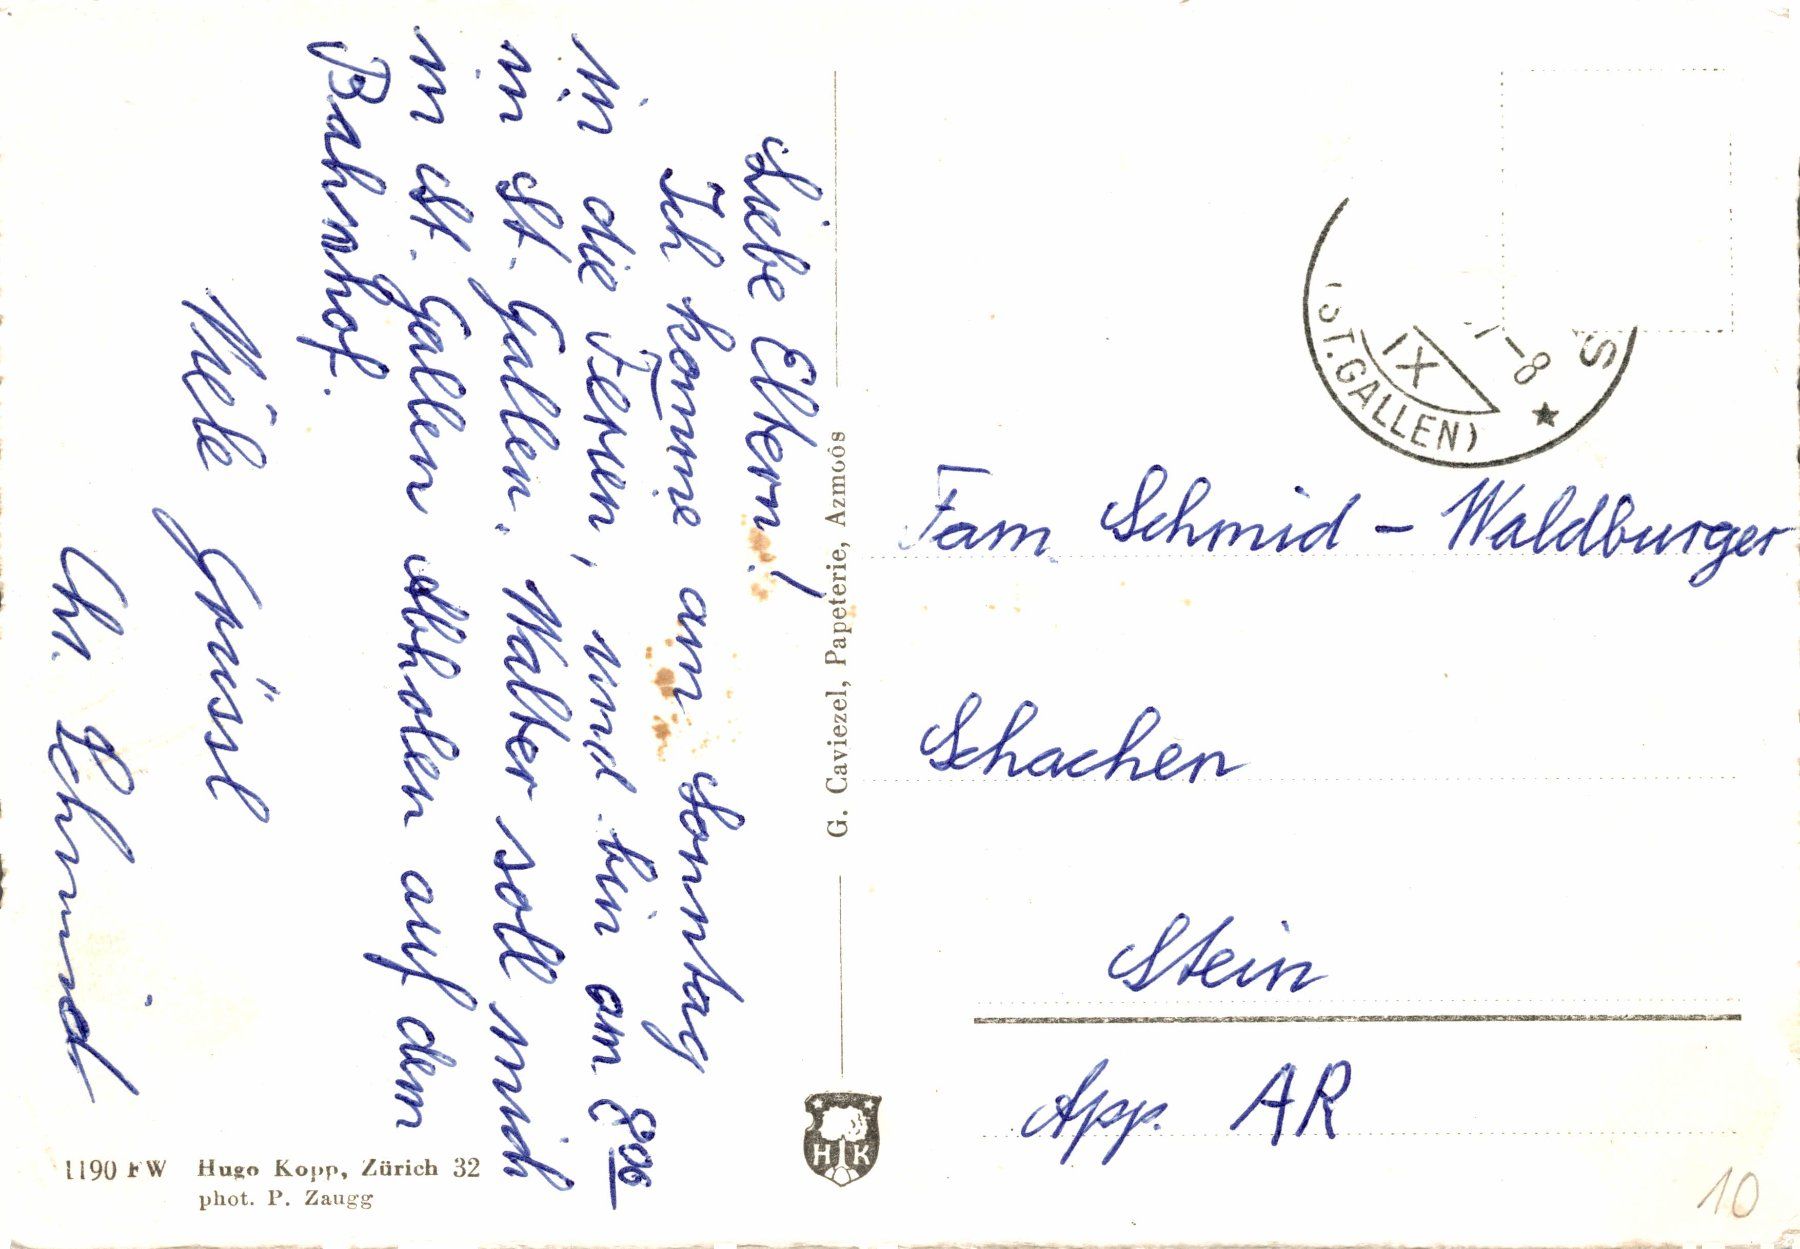 Liebe Eltern!
Ich komme am Sonntag
in die Ferien, und bin am 8⁰⁶
in St. Gallen. Walter soll mich
in St. Gallen Abholen auf dem
Bahnhof.
Viele Grüssl
Chr. Schmid
G. Caviezel, Papeterie, Azmoos
1190 FW Hugo Kopp, Zürich 32
phot. P. Zaugg
H K
(ST. GALLEN)
IX
-8
S
Fam. Schmid - Waldburger
Schachen
Stein
App. AR
10